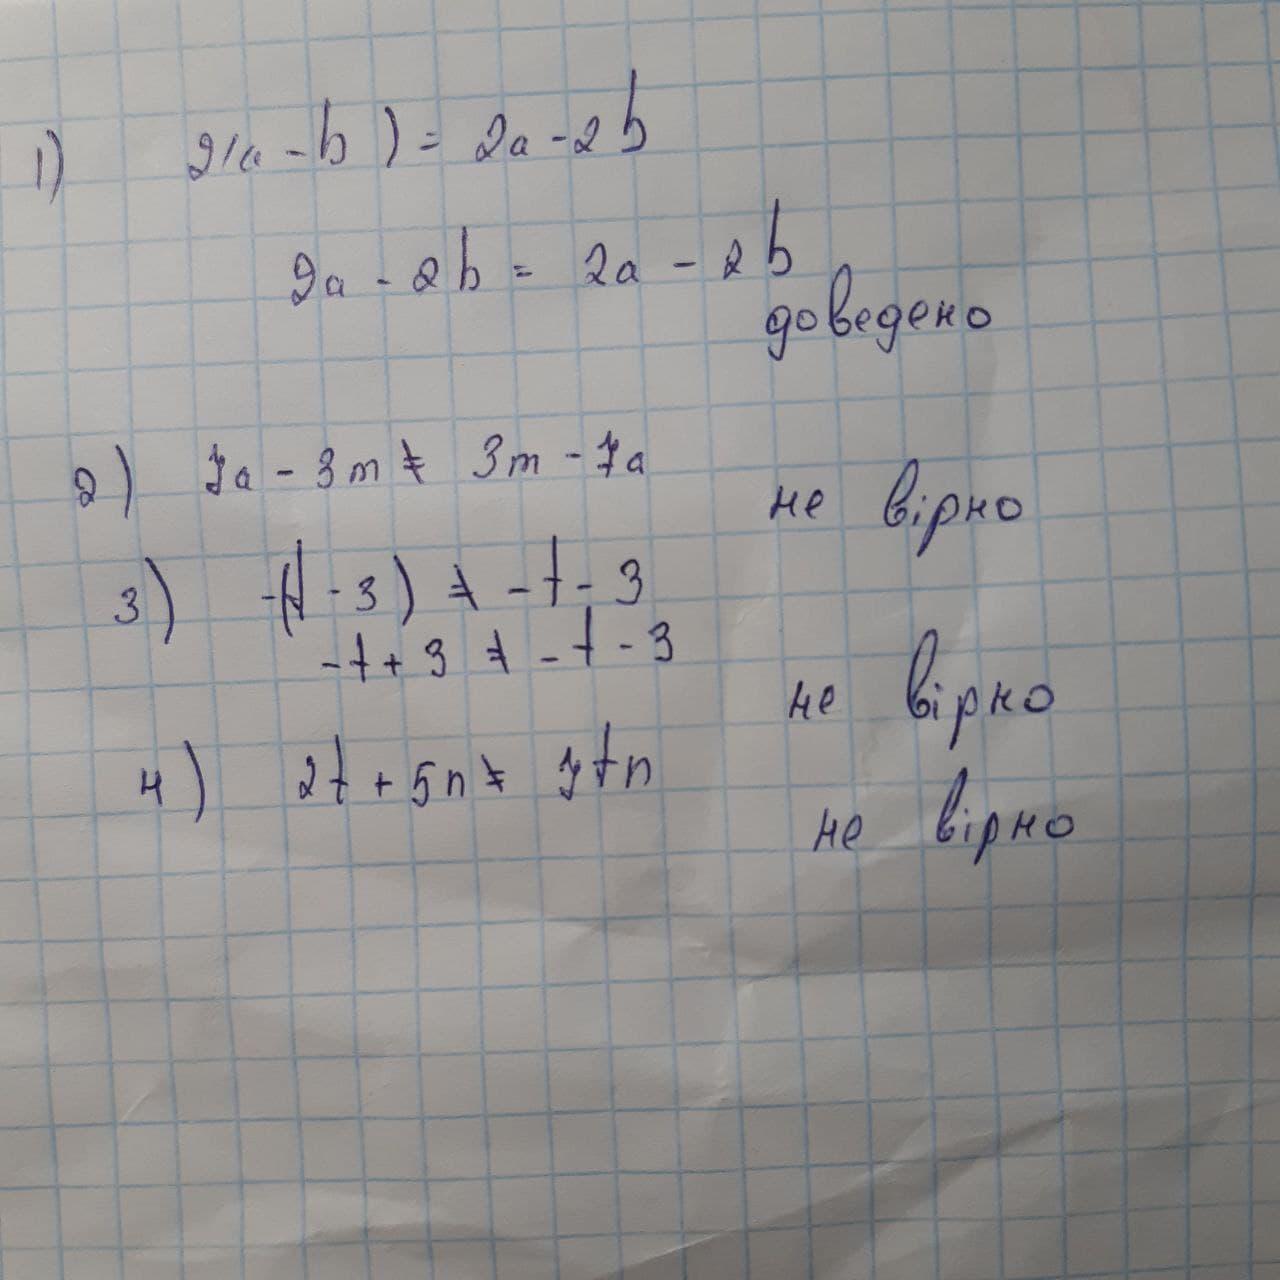 1) 2(a - b) = 2a - 2b
2a - 2b = 2a - 2b
доведено
2) 7a - 3m ≠ 3m - 7a
не вірно
3) -(t - 3) ≠ -t - 3
-t + 3 ≠ -t - 3
не вірно
4) 2t + 5n ≠ 7tn
не вірно